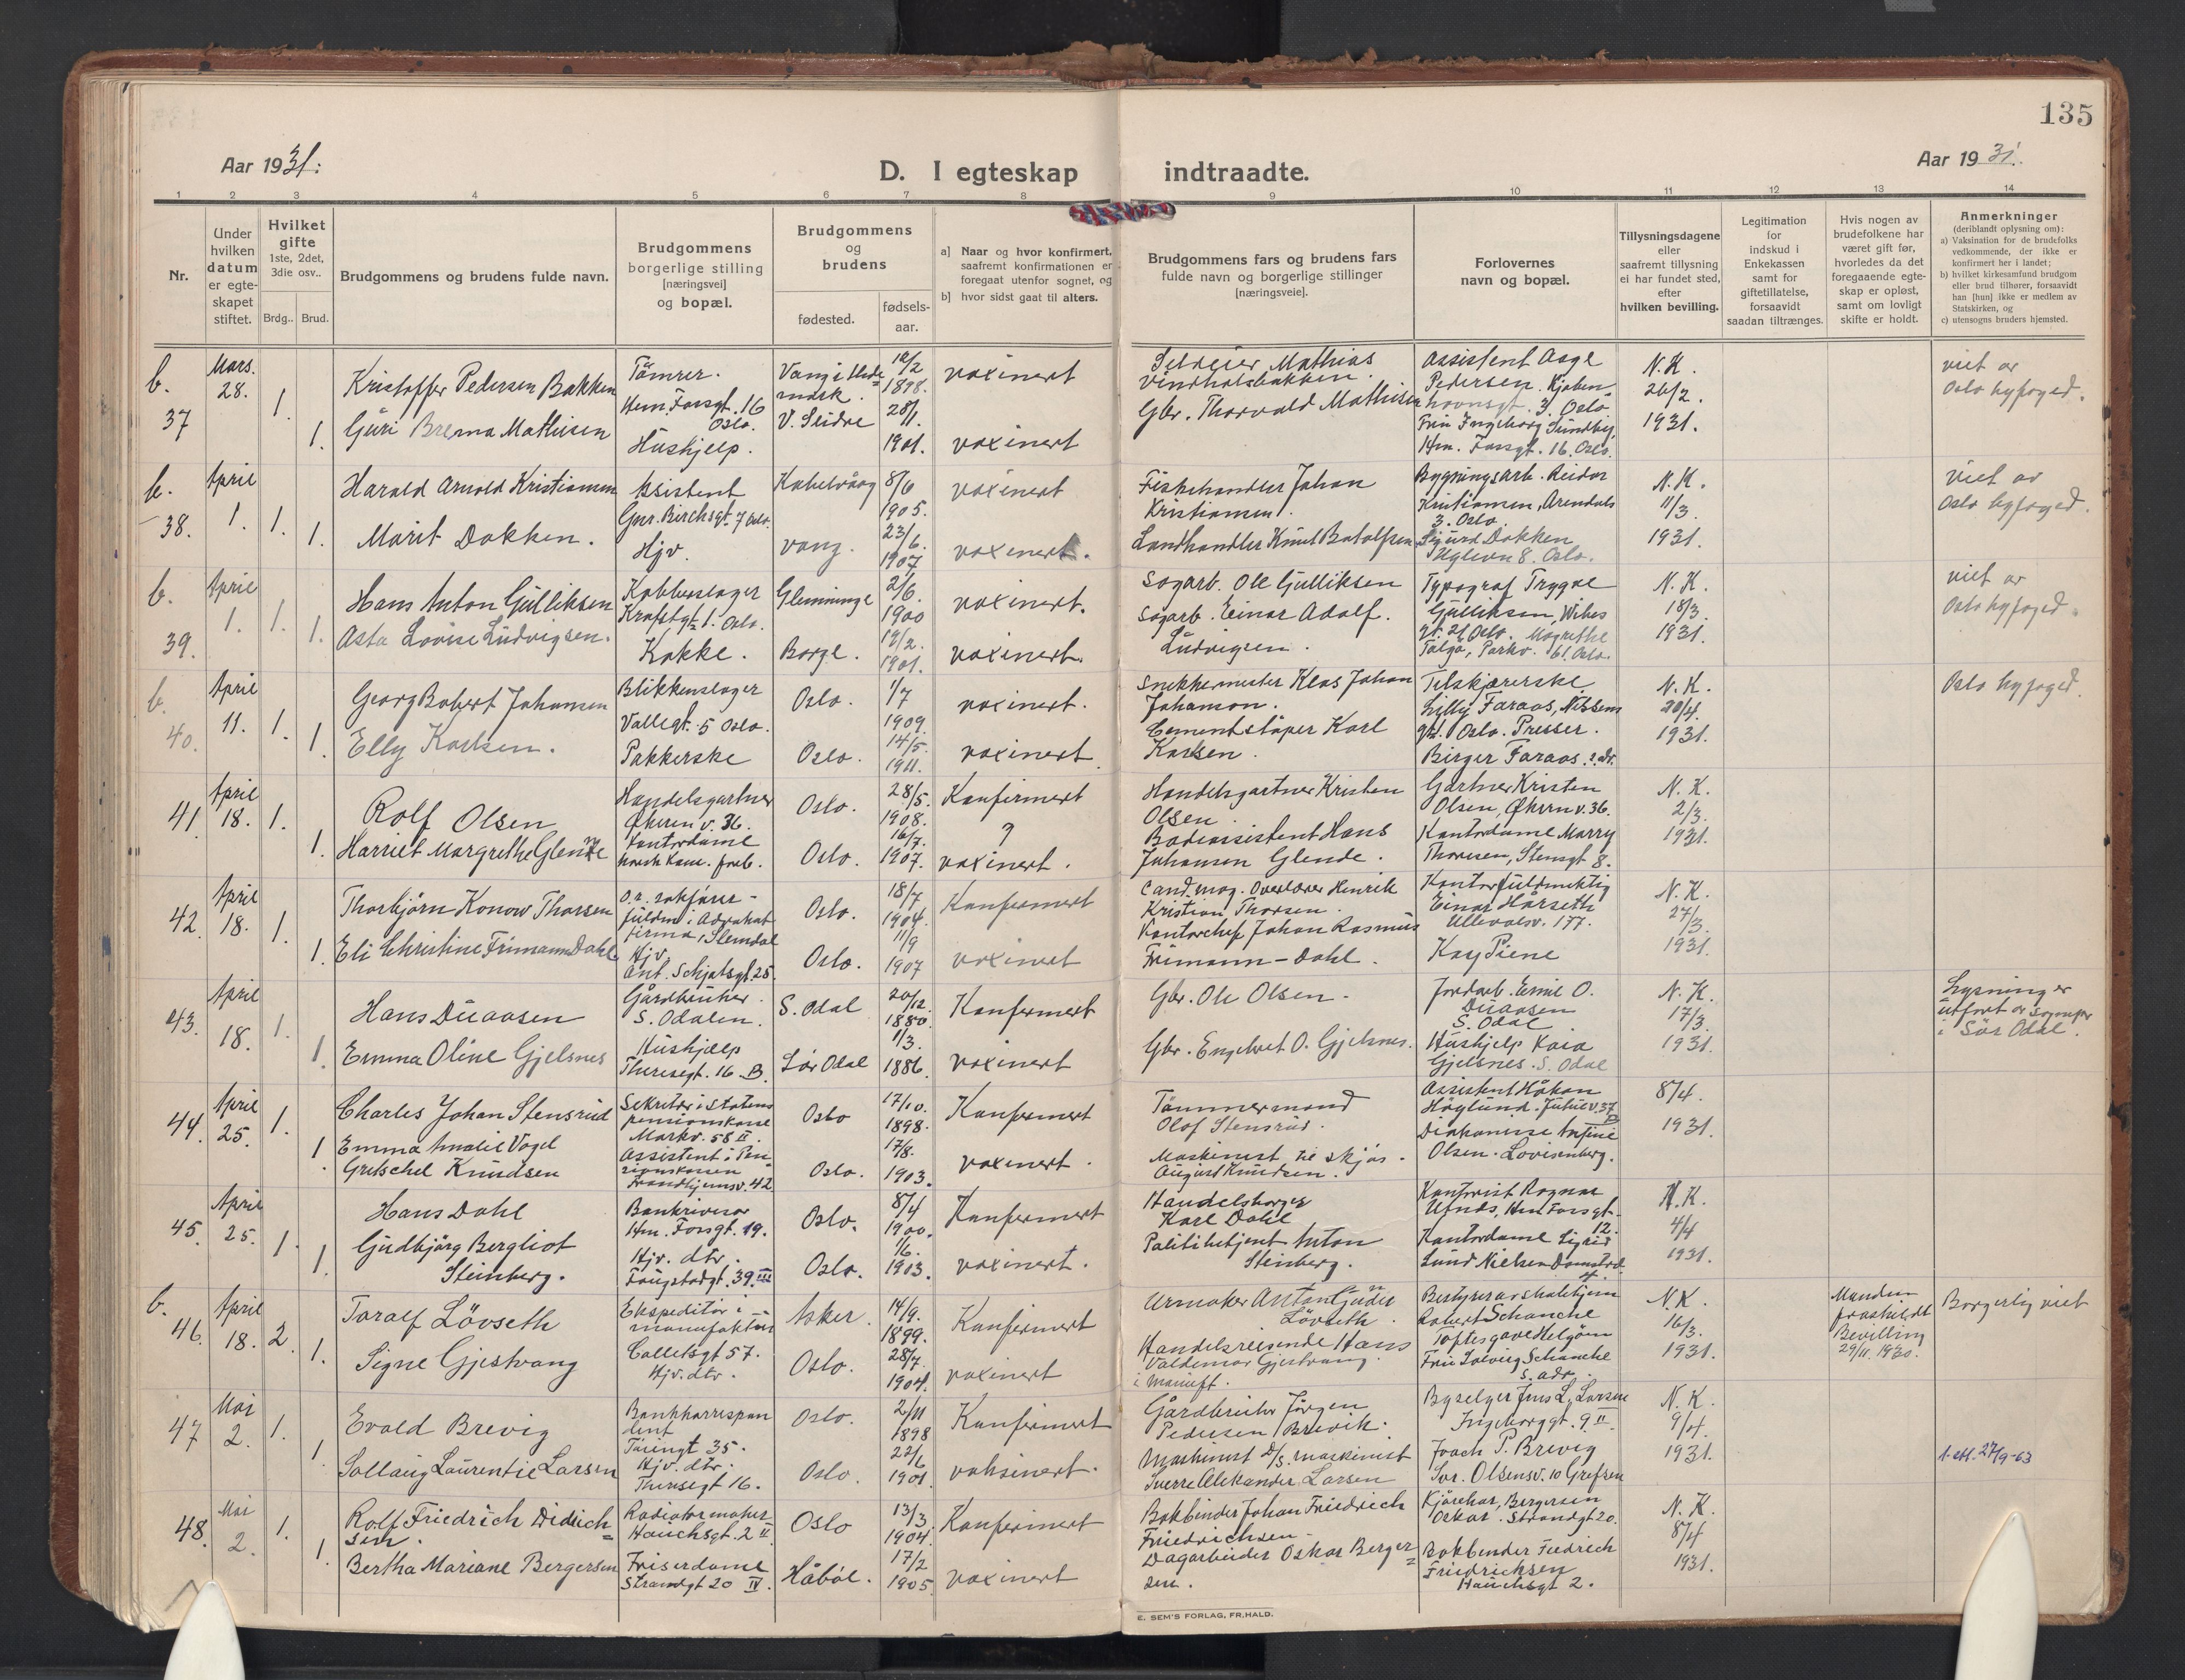 135
Aar 1931.
D. I egteskap indtraadte.
Aar 1931.
1 2 3 4 5 6 7 8 9 10 11 12 13 14
Nr.
Under
hvilken
datum
er egte-
skapet
stiftet.
Hvilket
gifte
1ste, 2det,
3die osv..
Brdg.. Brud.
Brudgommens og brudens fulde navn.
Brudgommens
borgerlige stilling
[næringsvei]
og bopæl.
Brudgommens
og
brudens
fødested.
fødsels-
aar.
a] Naar og hvor konfirmert,
saafremt konfirmationen er
foregaat utenfor sognet, og
b] hvor sidst gaat til alters.
Brudgommens fars og brudens fars
fulde navn og borgerlige stillinger
[næringsveie].
Forlovernes
navn og bopæl.
Tillysningsdagene
eller
saafremt tillysning
ei har fundet sted,
efter
hvilken bevilling.
Legitimation
for
indskud i
Enkekassen
samt for
giftetillatelse,
forsaavidt
saadan tiltrænges.
Hvis nogen av
brudefolkene har
været gift før,
hvorledes da det
foregaaende egte-
skap er opløst,
samt om lovligt
skifte er holdt.
Anmerkninger
(deriblandt oplysning om):
a) Vaksination for de brudefolks
vedkommende, der ikke er
konfirmert her i landet;
b) hvilket kirkesamfund brudgom
eller brud tilhører, forsaavidt
han [hun] ikke er medlem av
Statskirken, og
c) utensogns bruders hjemsted.
b.
37
Mars.
28.
1.
1.
Kristoffer Pedersen Bakken
Guri Mathisen
Tömrer.
Hem. Forsgt. 16
Oslo.
Hushjelp.
Vang i Hede=
mark.
V. Slidre
1898.
28/1.
1901.
vaxinert
vaxinert
Mathias
Gbr. Thorvald Mathisen
Assistent Aage
Pedersen. Kjøben
havnsgt. 3. Oslo.
Fru Ingeborg Sundby,
Hm. Forsgt. 16. Oslo.
N.K.
26/2.
1931.
viet av
Oslo byfoged.
b.
38.
April
1.
1.
1.
Harald Arnold Kristiansen
Marit Dokken.
Assistent
Gnr. Birchsgt. 7 Oslo.
Hjv.
Kabelvåag
vang.
8/6
1905.
23/6.
1907
vaxinert
vaxinert.
Fiskehandler Johan
Kristiansen.
Landhandler Knut
Bygningsarb. Reidar
Kristiansen, Arendals
3. Oslo.
Sigurd Dokken
Uglevn 8. Oslo.
N.K.
11/3.
1931.
viet av
Oslo byfoged.
b.
39.
April
1.
1.
1.
Hans Anton Gulliksen
Asta Lovise Ludvigsen.
Kobberslager
1. Oslo.
Kokke.
Glemminge
Borge.
2/6.
1900
19/2.
1901.
vaxinert.
vaxinert.
Sagarb. Ole Gulliksen
Sagarb. Einar Adolf.
Ludvigsen.
Typograf Trygve
Gulliksen, Wibes
gt. 21 Oslo. Magrethe
Parkv. 61. Oslo.
N.K.
18/3.
1931.
viet av
Oslo byfoged.
b.
40.
April
11.
1.
1.
Georg Robert Johansen
Elly Karlsen.
Blikkenslager
Vallegt. 5 Oslo.
Pakkerske
Oslo.
Oslo.
1/7
1909.
14/5.
1911.
vaxinert.
vaxinert.
Snekkermester Klas Johan
Johanson.
Cementstøper Karl
Karlsen.
Tilskjærerske
Lilly Faraos, Nilsens
gt. Oslo. Presser.
Birger Faraos. s. adr.
N.K.
20/4.
1931.
Oslo byfoged.
41.
April
18.
1.
1.
Rolf Olsen
Harriet Margrethe Glende
Handelsgartner
Økern v. 36.
Kontordame
Oslo.
Oslo.
28/5.
1908.
16/7.
1907.
Konfirmert
?
vaxinert.
Handelsgartner Kristen
Olsen.
Hans
Johansen Glende.
Gartner Kristen
Olsen, Økern v. 36.
Kontordame Marry
Thoresen, Stensgt 8.
N.K.
2/3.
1931.
42.
April
18.
1.
1
Thorbjörn Konow Thorsen
Eli Christine Frimann Dahl
O.r. sakfører-
fuldm. i Advokat
firma, Slemdal
Hjv.
Ant. Schjøtsgt. 25.
Oslo.
Oslo.
18/7
1904.
11/9
1907
Konfirmert
vaxinert
Cand. mag. Overlærer Henrik
Kristian Thorsen.
Kontorchef Johan Rasmus
Frimann-Dahl.
Kontorfuldmektig
Einar Hårseth
Ullevalsv. 177.
Kay Piene
N.K.
27/3.
1931.
43.
April
18.
1.
1.
Hans Duaasen
Emma Oline Gjelsnes
Gårdbruker.
S. Odalen.
Hushjelp
Theresegt. 16 B.
S. Odal
Sör Odal
20/12.
1880.
1/3.
1886.
Konfermert
vaxinert
Gbr. Ole Olsen.
Gbr. Engebret O. Gjelsnes.
Jordarb. Emil O.
Duaasen
S. Odal
Hushjelp Kaia
Gjelsnes. S. Odal
N.K.
17/3.
1931.
Lysning er
utført av Sognepr
i Sör Odal.
44.
April
25.
1.
1.
Charles Johan Stensrud
Emma Amalie Vogel
Gretschel Knudsen
Sekretær i Statens
pensionskasse
Markv. 58 II.
Assistent i Pen
sionskassen
Trondhjemsv. 42
Oslo
Oslo.
17/10.
1898.
17/8.
1903.
Konfermert
vaxinert.
Tömmermand
Olof Stensrud.
Maskinist til skjös.
August Knudsen.
Assistent Håkon
Höglund.
Diakonisse
Olsen. Lovisenberg.
8/4.
1931.
45.
April
25.
1.
1.
Hans Dahl
Gudbjörg Bergliot
Steinberg.
Bankrevisor
Hm. Forsgt. 19.
Hjv. dtr.
Fougstadgt. 39 III
Oslo.
Oslo.
8/4
1900.
1/6.
1903.
Konfermert
vaxinert.
Handelsborger
Karl Dahl
Politibetjent Anton
Steinberg.
Kontorist Ragnar
Ufnds, Hm Forsgt.
12.
Kontordame Sigrid
Lund Nielsen
N.K.
4/4
1931.
b.
46.
April
18.
2.
1.
Toralf Lövseth
Signe Gjestvang
Ekspeditör i
manufaktur
Colletsgt 57.
Hjv. dtr.
Asker.
Oslo.
14/9.
1899.
28/7.
1904.
Konfirmert
vaxinert
Urmaker Anton
Lövseth.
Handelsreisende Hans
Valdemar Gjestvang.
i Manuft.
Bestyrer av skolehjem
Robert Schanche
Toftesgave Helgöen
Fru Solveig Schanche
s. adr.
N.K.
16/3.
1931.
Manden
fraskildt
Bevilling
29/11. 1930.
Borgerlig viet
47
Mai
2.
1.
1
Evald Brevig
Sollaug Laurentie Larsen
Bankkorrespon
dent
35.
Hjv. dtr.
Theresegt 16.
Oslo.
Oslo.
2/11
1898
22/6
1901.
Konfirmert
vaksinert.
Gårdbruker Jörgen
Pedersen Brevik.
Maskinist D/S. maskinist
Sverre Aleksander Larsen
Byselger Jens L. Larsen
Ingeborggt. 9 II.
Joach P. Brevig
Svr. Olsensv. 10 Grefsen
N.K.
9/4.
1931.
1. att. 27/9-63
48.
Mai
2.
1.
1.
Rolf Friedrich Didrich=
sen.
Bertha Mariane Bergersen
Radiatormaker
Hauchsgt. 2 II.
Friserdame
Strandgt 20 IV.
Oslo
Håböl.
13/3
1904.
17/2
1905.
Konfirmert
vaxinert
Bokbinder Johan Friedrich
Friedrichsen
Dagarbeider Oskar Berger=
sen.
Kjörekar, Bergersen
Oskar. Strandgt 20.
Bokbinder Fredrich
Friedrichsen
Hauchsgt 2.
N.K.
8/4
1931.
E. SEM'S FORLAG, FR.HALD.